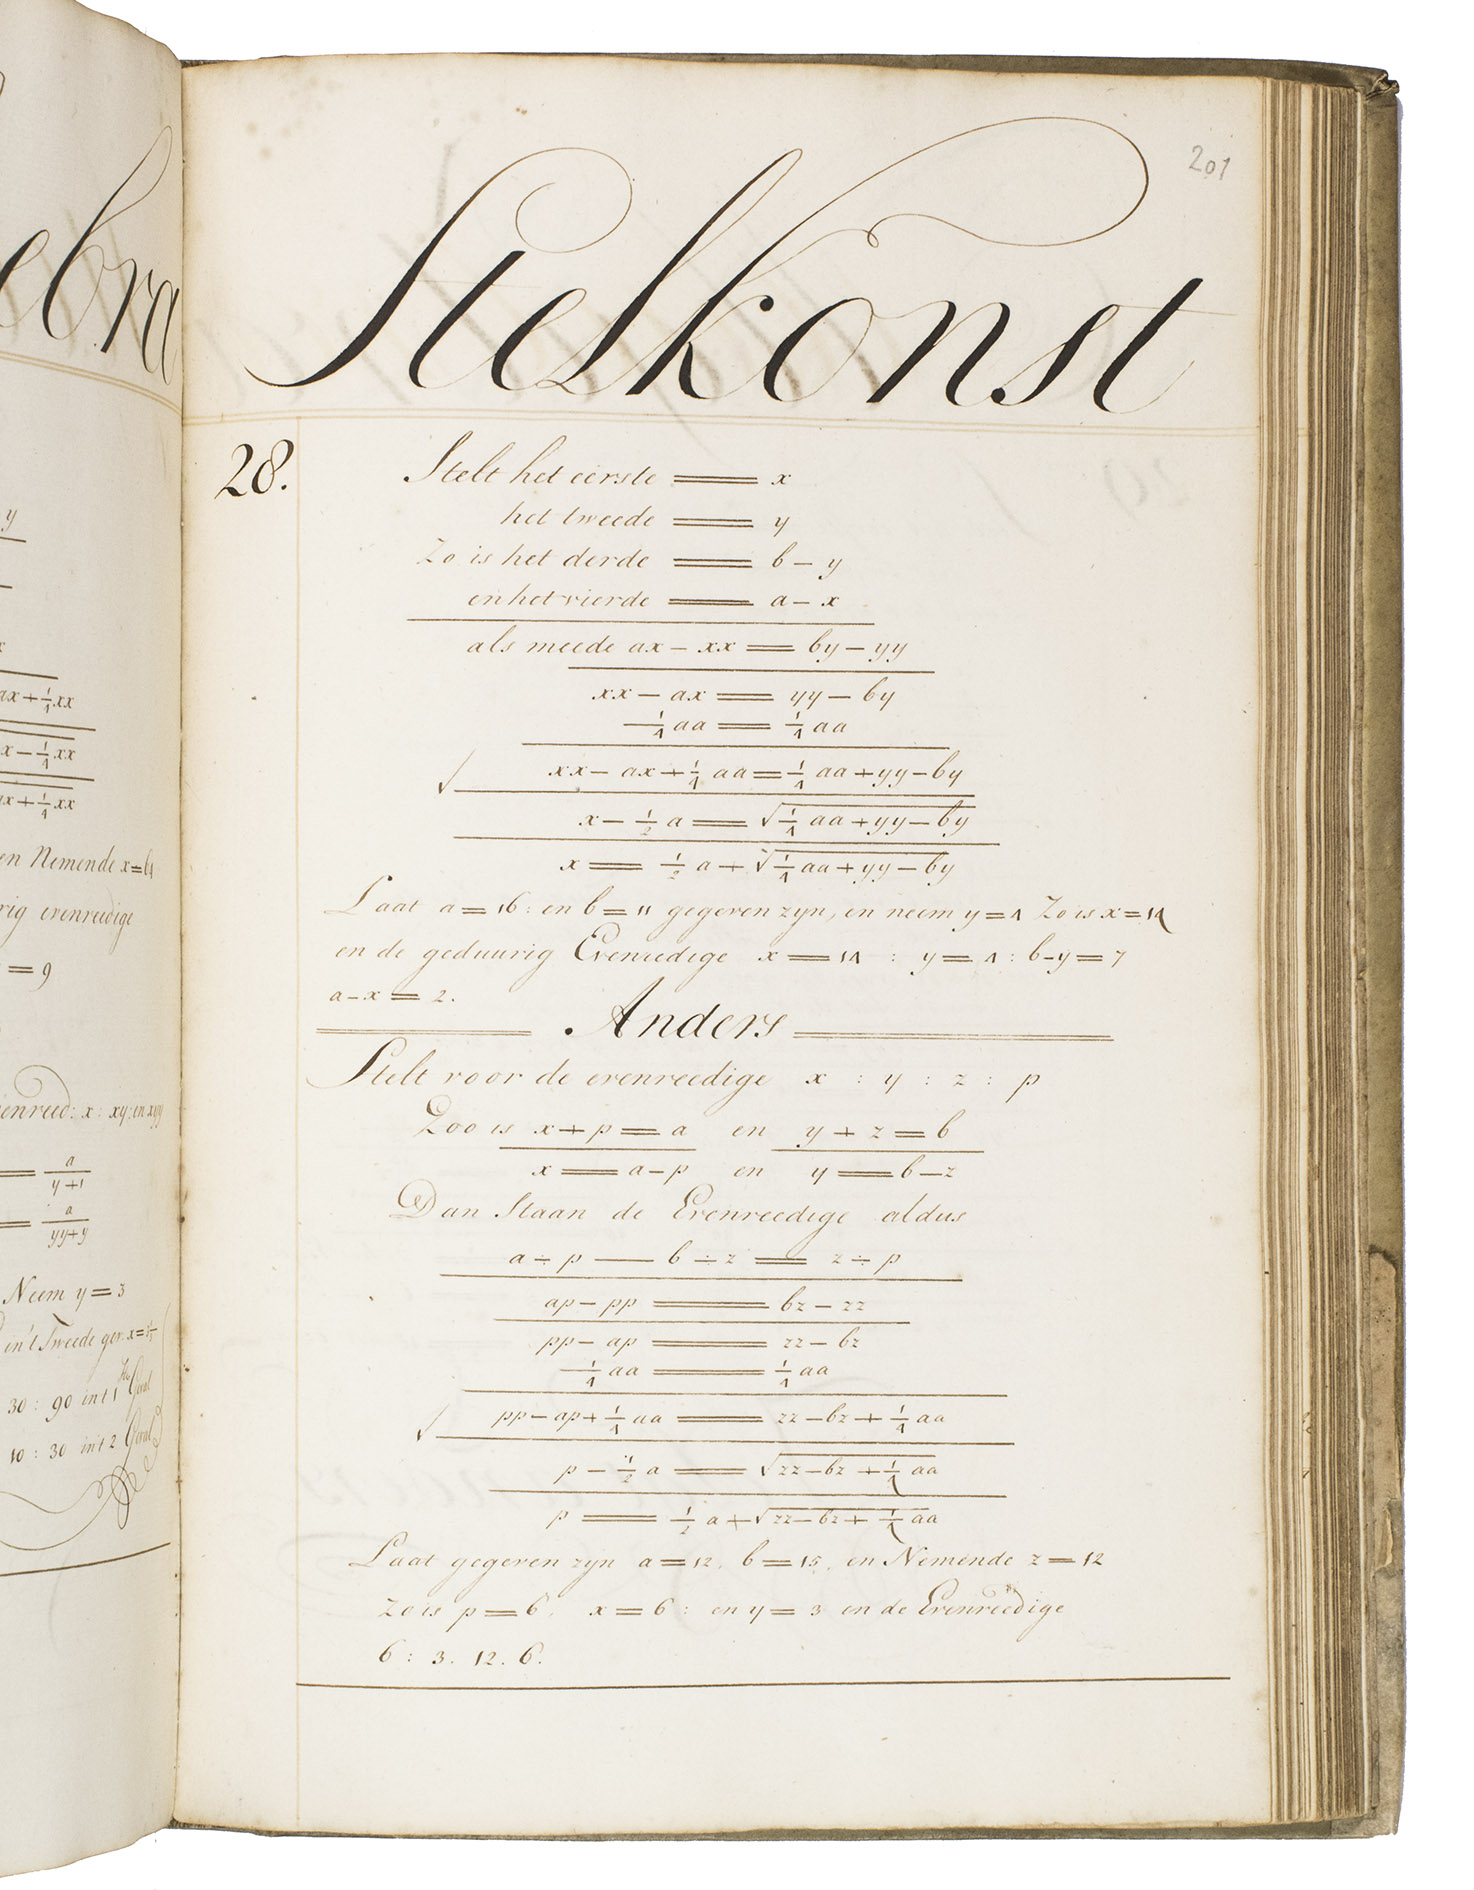 ebra
y
ax + 1/4 xx
x - 1/4 xx
ax + 1/4 xx
en Nemende x = 64
rig evenreedige
= 9
enreed: x : xy : en xyy
= a/y+1
= a/yy+y
Neem y = 3
30 : 90 int 1
10 : 30 int 2
201
Stelkonst
28.
Stelt het eerste = x
het tweede = y
Zo is het derde = b - y
en het vierde = a - x
als meede ax - xx = by - yy
xx - ax = yy - by
1/4 aa = 1/4 aa
√ xx - ax + 1/4 aa = 1/4 aa + yy - by
x - 1/2 a = √ 1/4 aa + yy - by
x = 1/2 a + √ 1/4 aa + yy - by
Laat a = 16 : en b = 11 gegeven zyn, en neem y = 4 Zo is x = 14
en de geduurig Evenredige x = 14 : y = 4 : b - y = 7
a - x = 2.
Anders
Stelt voor de evenreedige x : y : z : p
Zoo is x + p = a en y + z = b
x = a - p en y = b - z
Dan Staan de Evenreedige aldus
a ÷ p — b ÷ z = z ÷ p
ap - pp = bz - zz
pp - ap = zz - bz
1/4 aa = 1/4 aa
√ pp - ap + 1/4 aa = zz - bz + 1/4 aa
p - 1/2 a = √ zz - bz + 1/4 aa
p = 1/2 a + √ zz - bz + 1/4 aa
Laat gegeven zyn a = 12. b = 15. en Nemende z = 12
Zo is p = 6. x = 6 : en y = 3 en de Evenreedige
6 : 3. 12. 6.